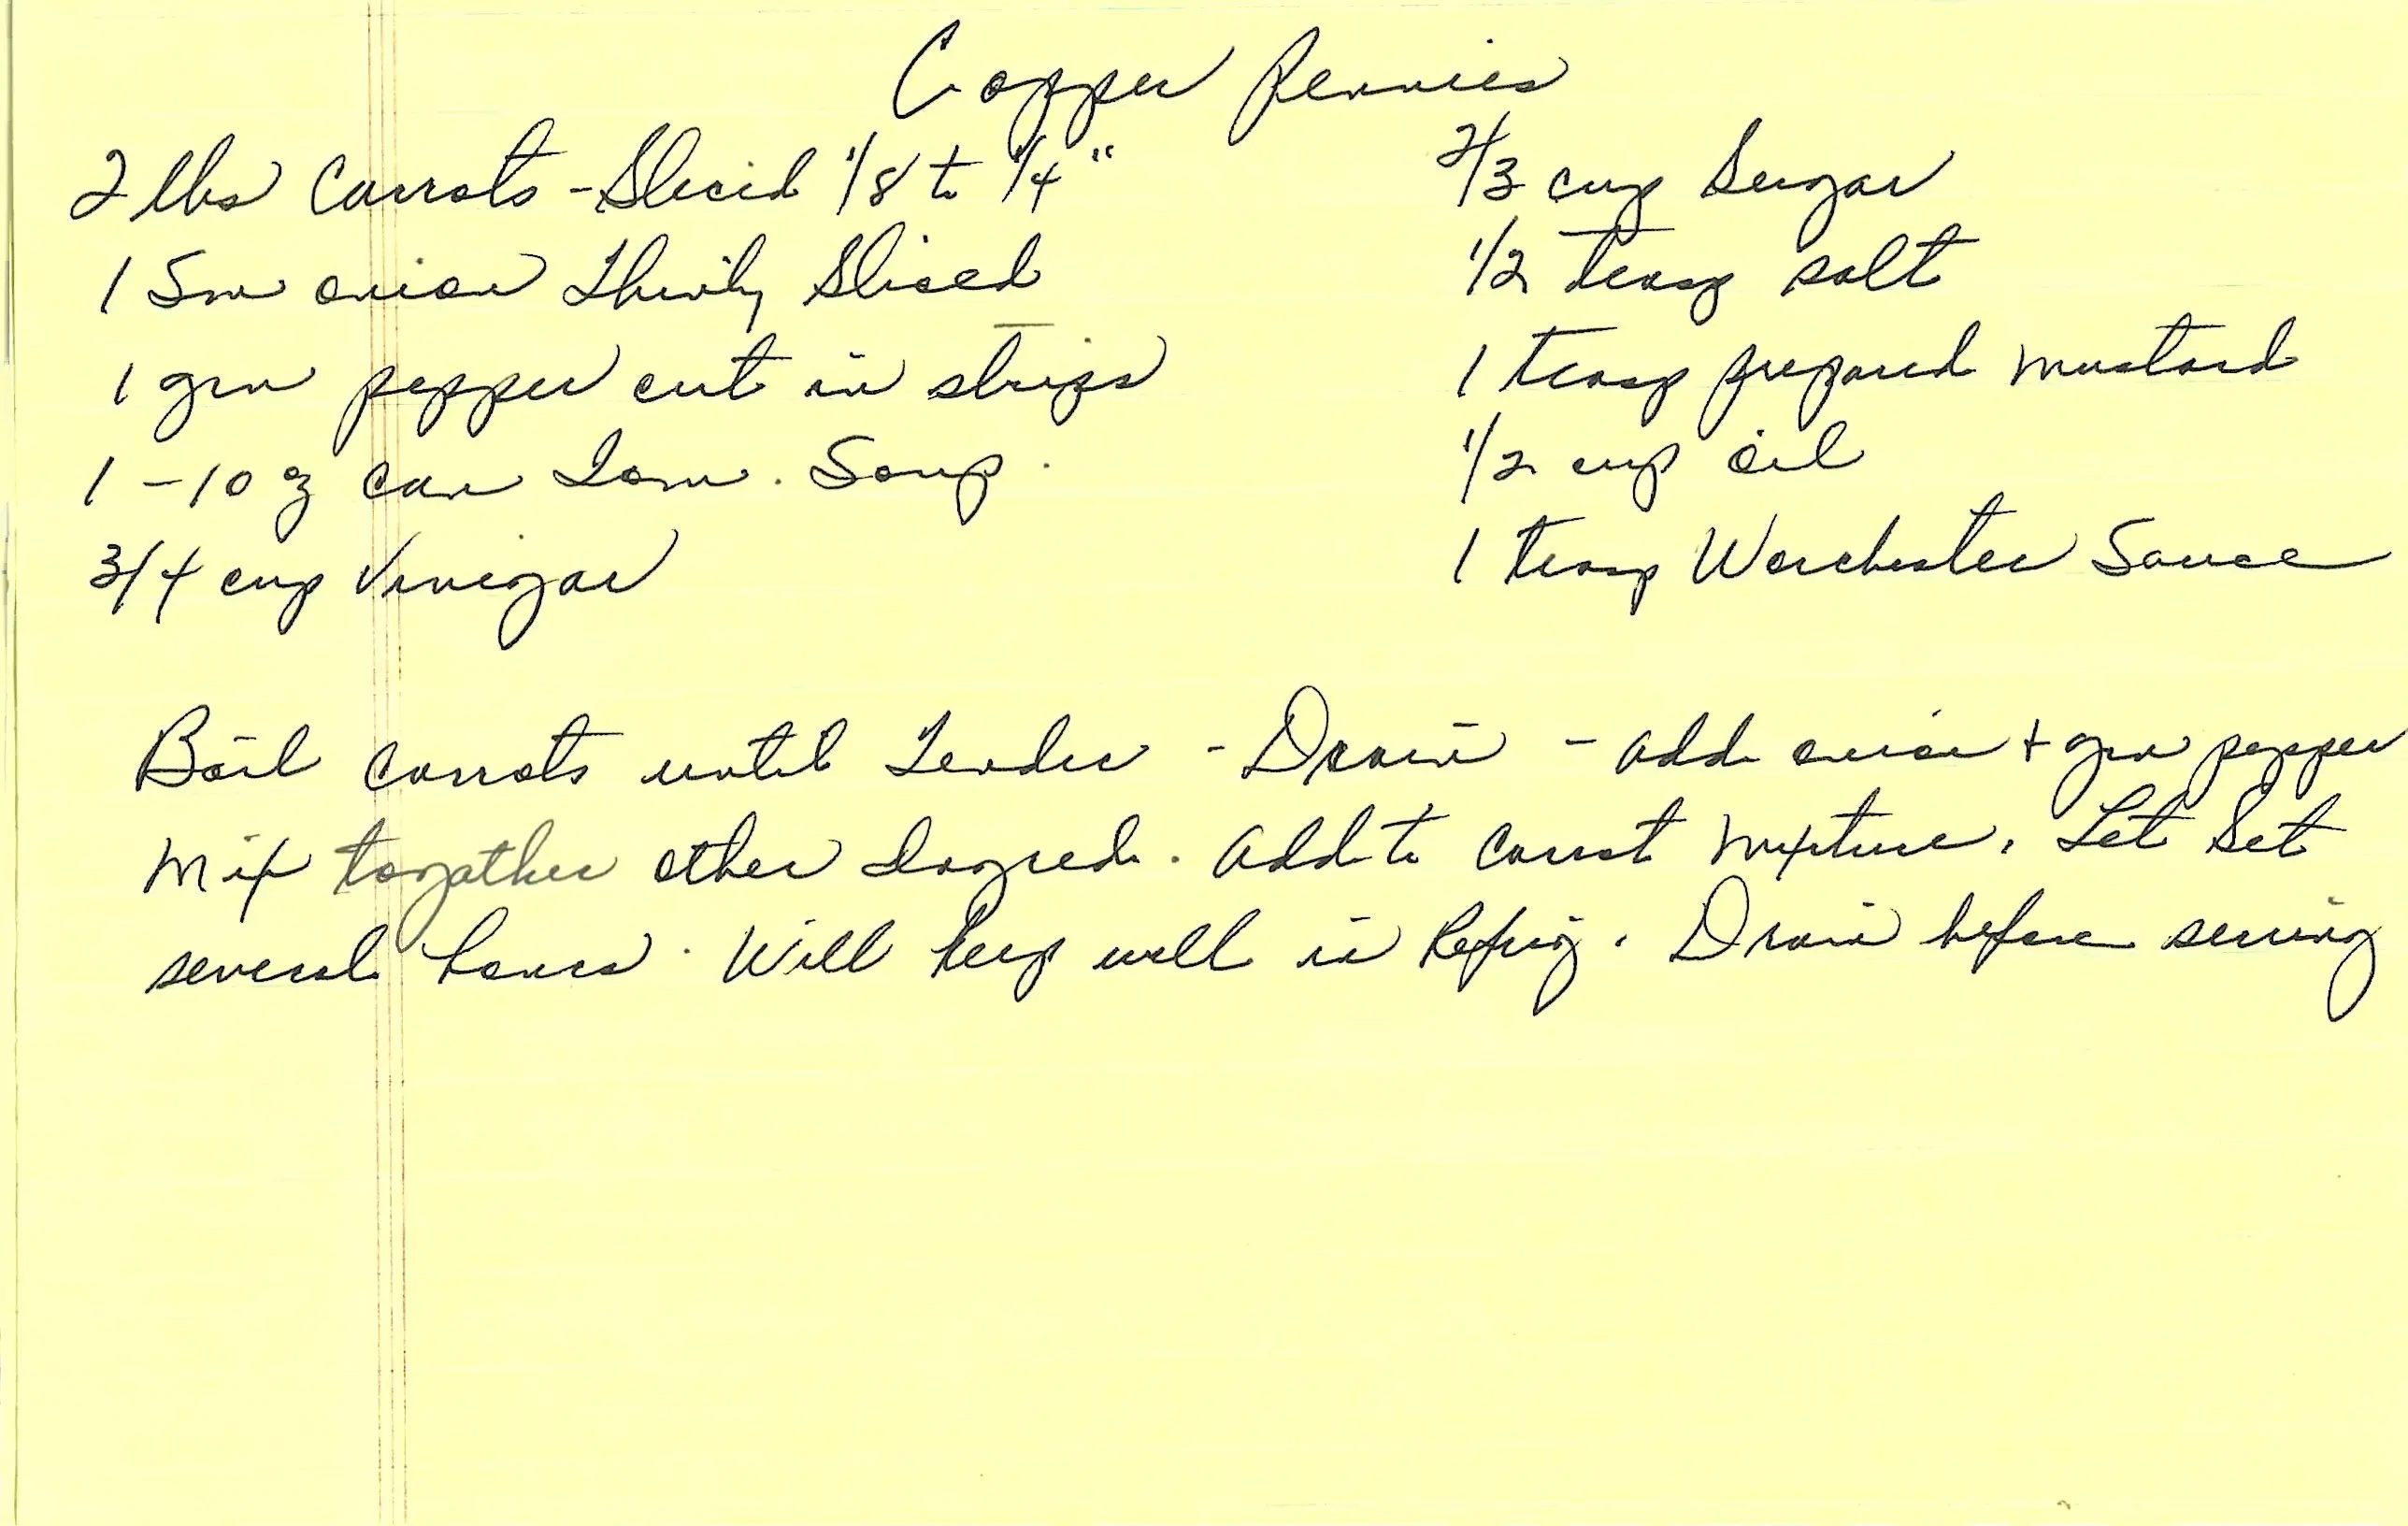 Copper Pennies
2 lbs Carrots - Sliced 1/8 to 1/4"
1 Sm onion Thinly Sliced
1 grn pepper cut in strips
1 - 10 oz can Tom. Soup.
3/4 cup Vinegar
2/3 cup Sugar
1/2 teasp salt
1 teasp prepared mustard
1/2 cup oil
1 teasp Worchester Sauce
Boil carrots until Tender - Drain - add onion + grn pepper
Mix togather other Ingred. add to carrot mixture. Let Set
several hours. Will keep well in Refrig. Drain before serving